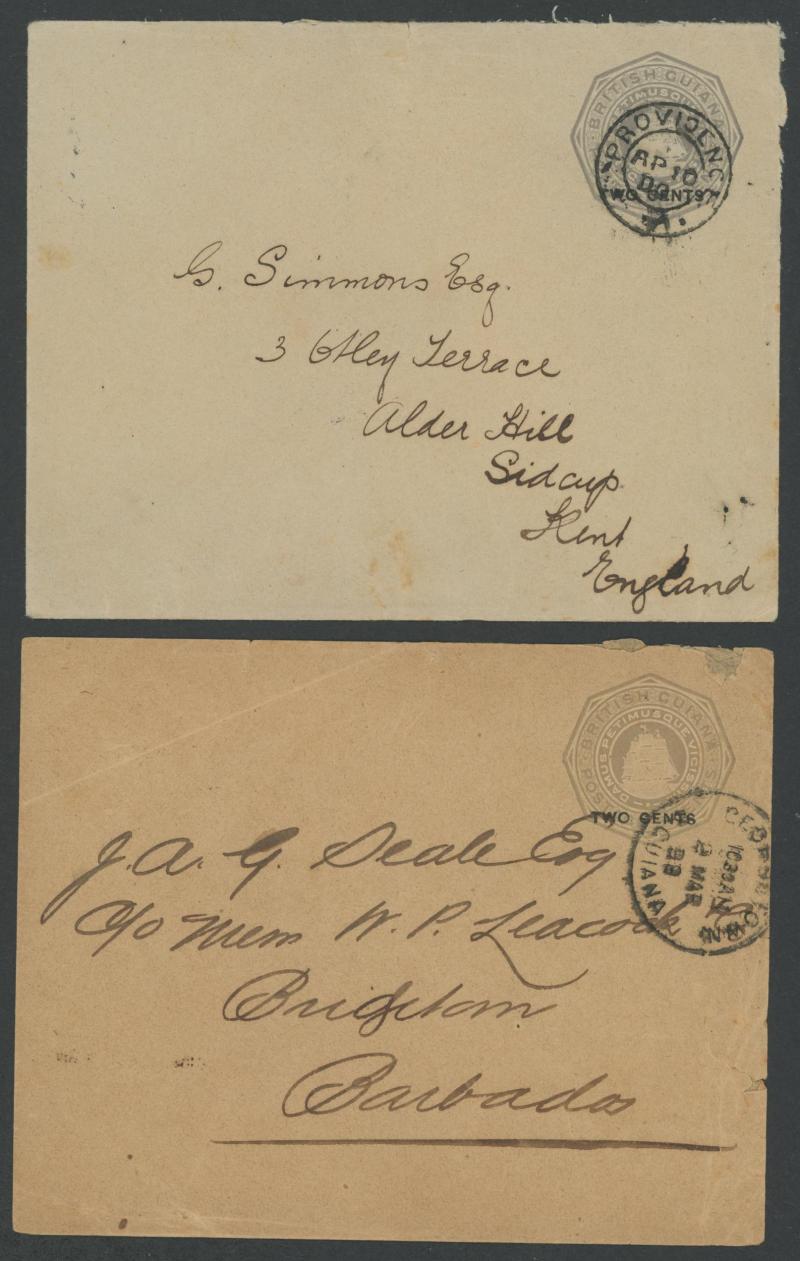 BRITISH GUIANA
PETIMUSQUE
PROVIDENC
AP 10
TWO CENTS
G. Simmons Esq.
3 Otley Terrace
Alder Hill
Sidcup
Kent
England
BRITISH GUIANA
DAMUS PETIMUSQUE VICISSIM
TWO CENTS
GEORGETOWN
1030AM
2 MAR
GUIANA
J. A. G. Deale Esq
C/o Mess W. P. Leacock &
Brighton
Barbados